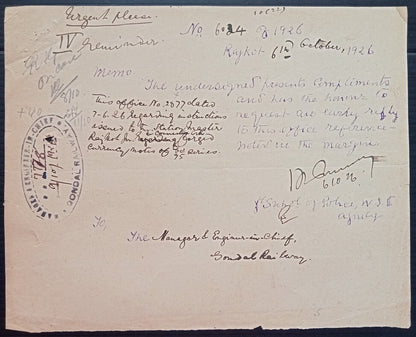 Urgent please.
IV Reminder
No. 6024 of 1926
Rajkot 6th October, 1926
Memo.
The undersigned presents compliments
and has the honour to
request an early reply
to this office reference
noted in the margin.
This office No. 2877 dated
7-6-26 regarding instructions
issued to the Station Master
Rajkot in connection
of forged
currency notes of
series.
6.10.26
Supdt of Police, W.I.S.
Agency
To,
The Manager & Engineer-in-Chief,
Gondal Railway.
MANAGER & ENGINEER-IN-CHIEF
GONDAL RAILWAY